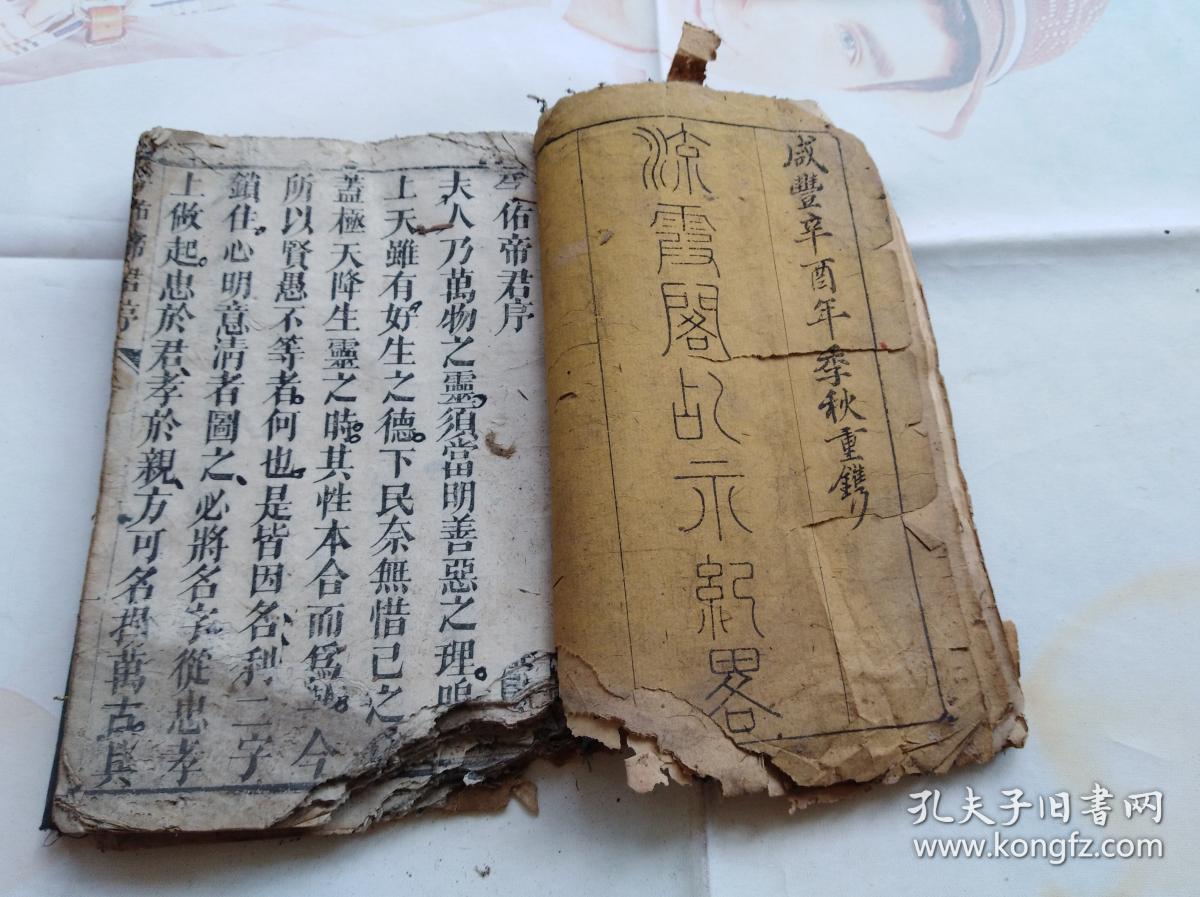 咸豐辛酉年季秋重鐫
流霞閣占示紀畧
佑帝君序
夫人乃萬物之靈須當明善惡之理嗚
上天雖有好生之德下民奈無惜己之
蓋極天降生靈之時其性本合而爲一今
所以賢愚不等者何也是皆因名利二字
鎖住心明意清者圖之必將名字從忠孝
上做起忠於君孝於親方可名揚萬古與
佑帝君序
孔夫子旧书网
www.kongfz.com